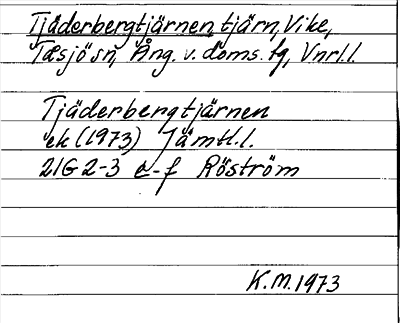 Tjäderbergtjärnen tjärn, Vike,
Tåsjö sn, Ång. v. doms. fg, Vnrl.l.
Tjäderbergtjärnen
ek (1973) Jämtl.l.
21G 2-3 e-f Röström
K.M. 1973